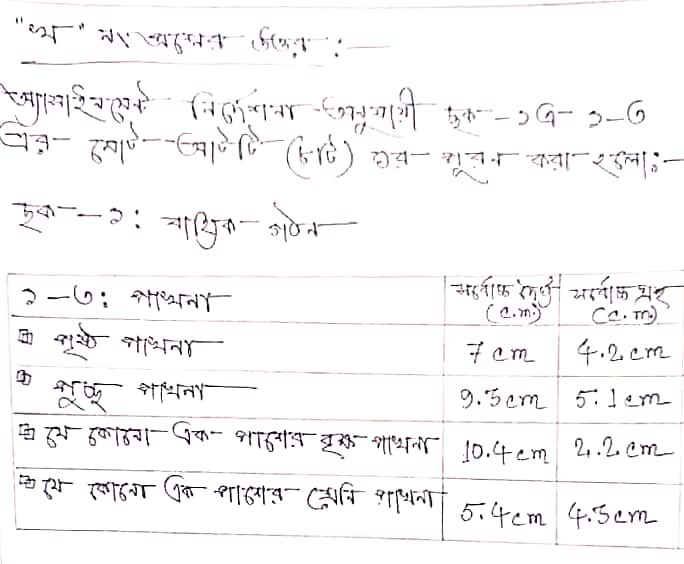 "খ" নং অংশের উত্তর :—
অ্যাসাইনমেন্ট নির্দেশনা অনুযায়ী ছক-১ এ ১-৩
এর মোট আটটি (৮টি) ঘর পূরন করা হলো:-
ছক--১: বাহ্যিক গঠন
১-৩: পাখনা সর্বোচ্চ দৈর্ঘ্য (c.m) সর্বোচ্চ প্রস্থ (c.m)
পৃষ্ঠ পাখনা 7 cm 4.2 cm
পুচ্ছ পাখনা 9.5 cm 5.1 cm
যে কোনো এক পাশের বক্ষ পাখনা 10.4 cm 2.2 cm
যে কোনো এক পাশের শ্রোণি পাখনা 5.4 cm 4.5 cm